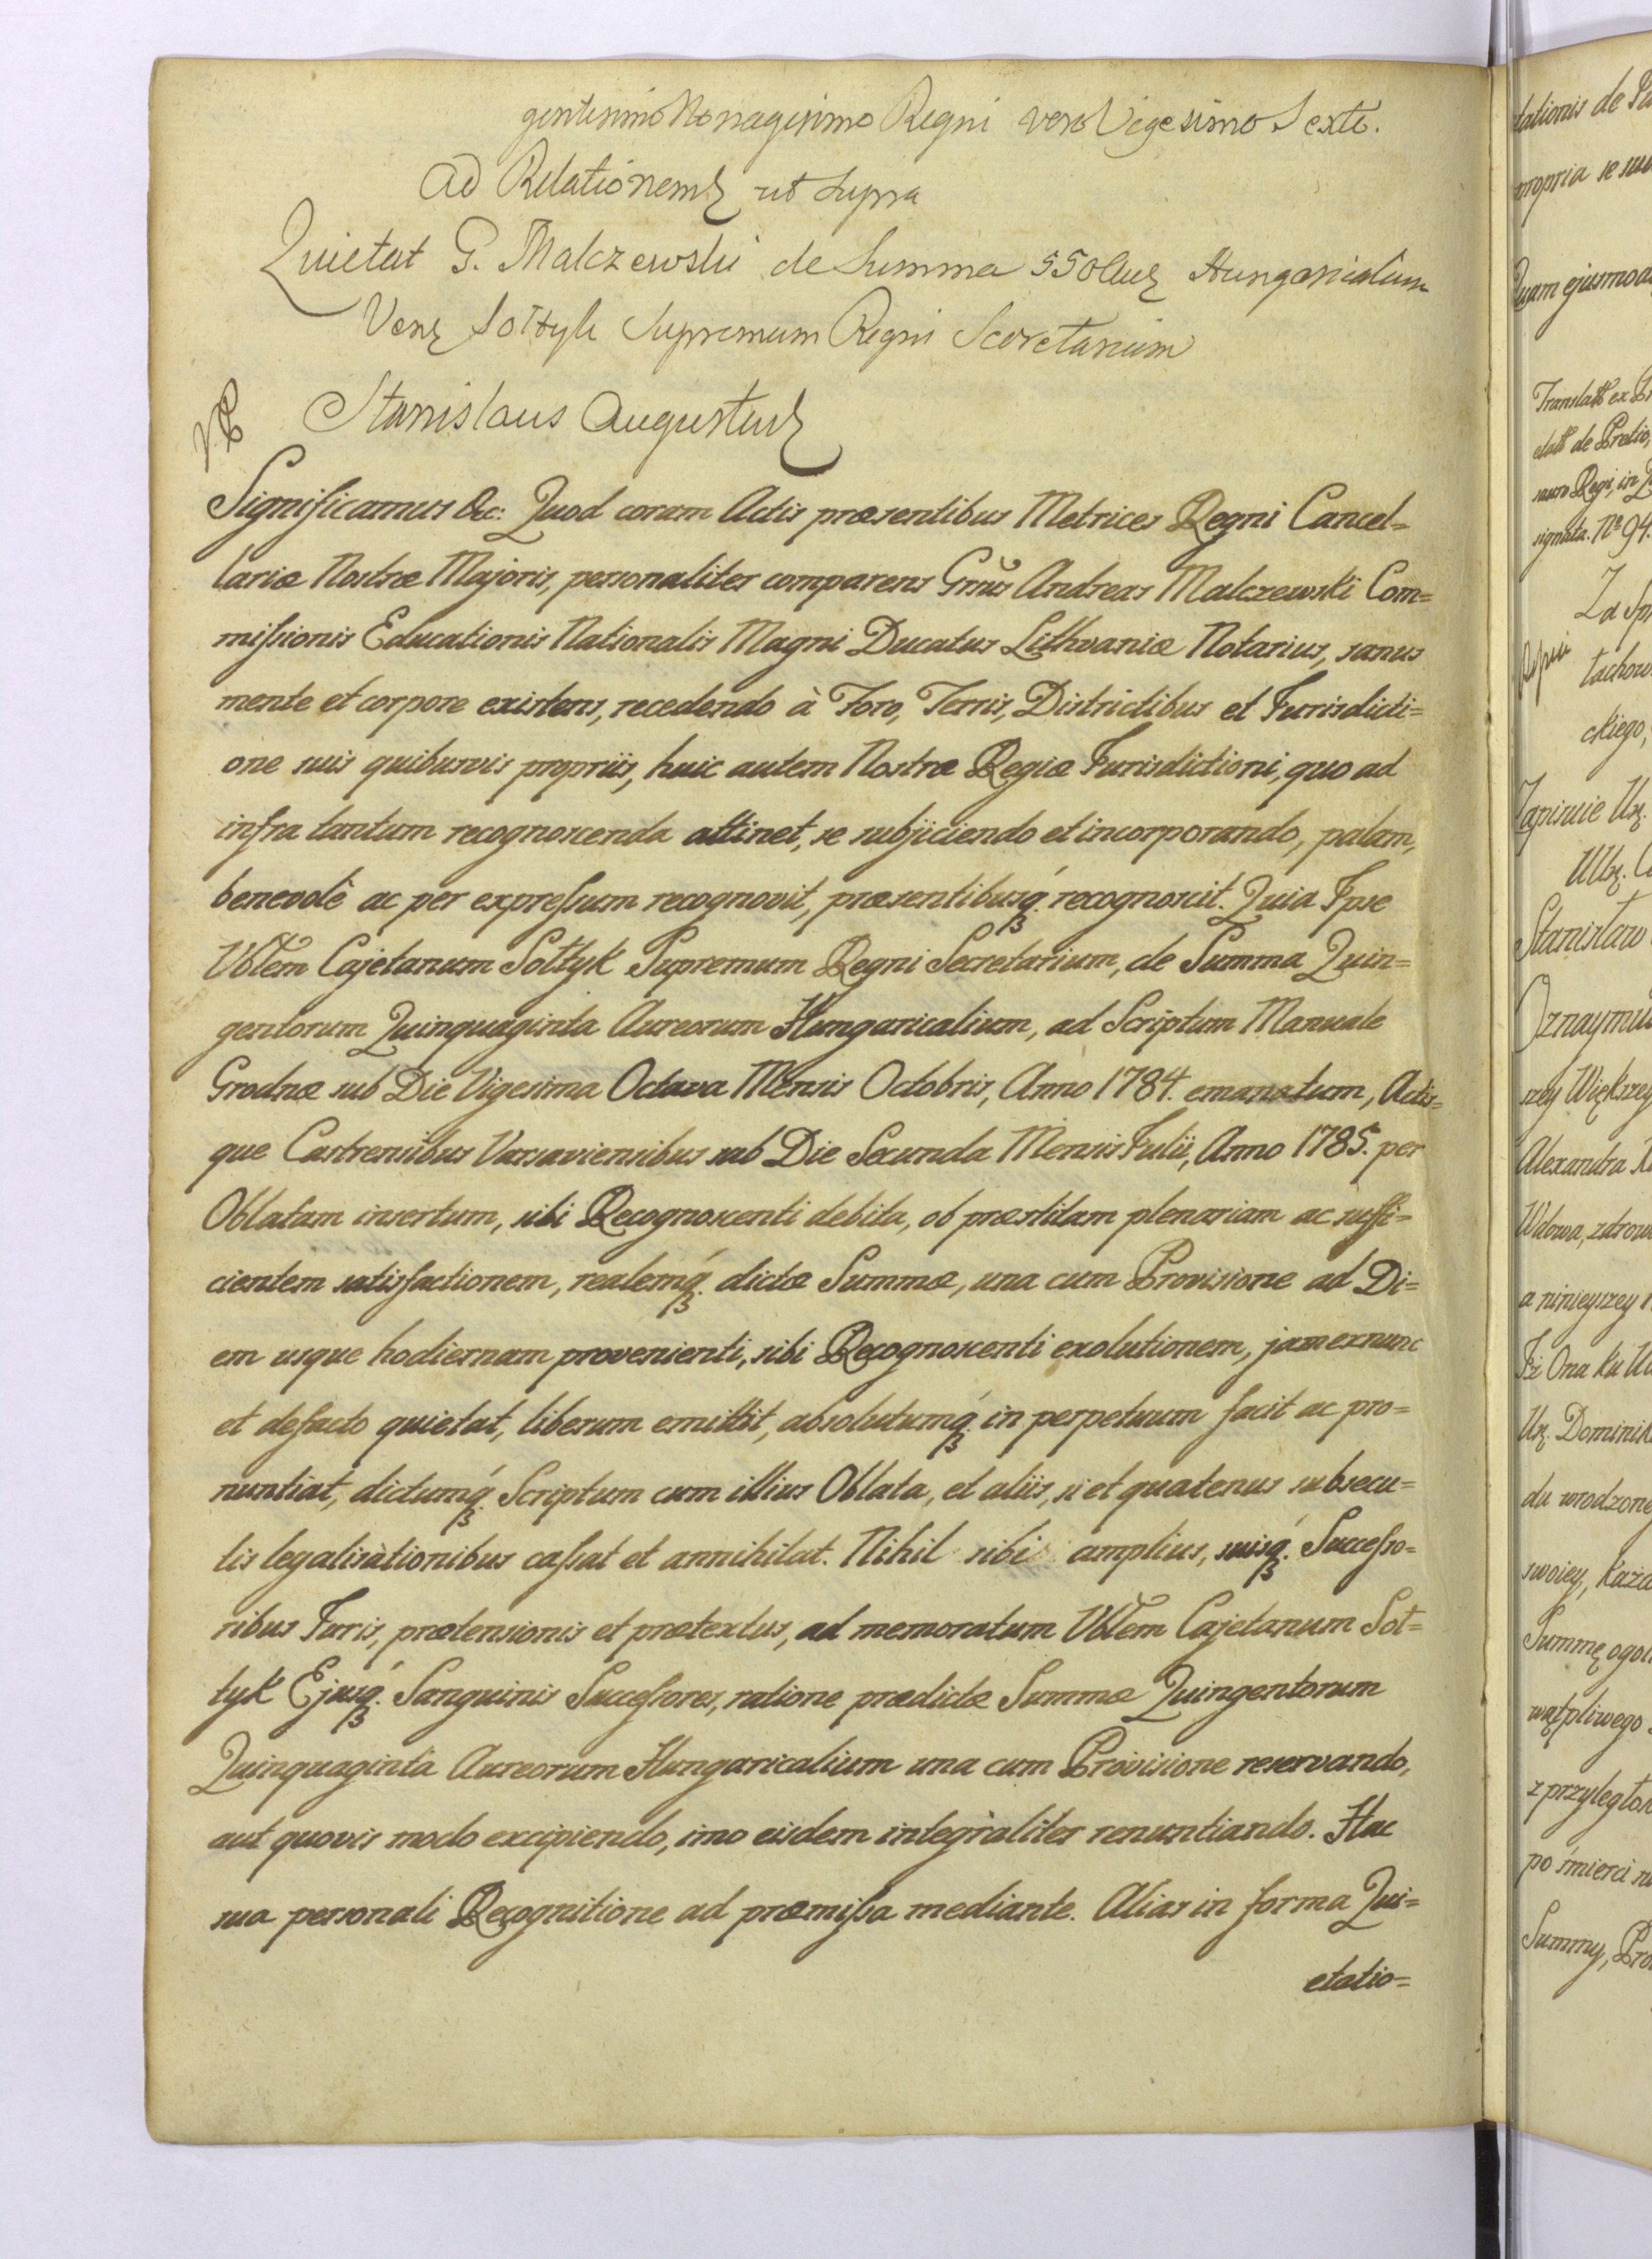 gentesimo Nonagesimo Regni vero Vigesimo Sexto.
Ad Relationem ut supra
Quietat G. Malczewski de Summa 550 Aur Hungaricalium
Vene Sołtyk Supremum Regni Secretarium
Stanislaus Augustus
Significamus &c: Quod coram Actis præsentibus Metrices Regni Cancel=
lariæ Nostræ Majoris, personaliter comparens Grsus Andreas Malczewski Com=
missionis Educationis Nationalis Magni Ducatus Lithvaniæ Notarius, sanus
mente et corpore existens, recedendo à Foro, Terris, Districtibus et Jurisdicti=
one suis quibusvis propriis, huic autem Nostræ Regiæ Jurisdictioni, quo ad
infra tantum recognoscenda attinet, se subjiciendo et incorporando, palam,
benevolè ac per expressum recognovit, præsentibusq. recognoscit. Quia Ipse
Vblem Cajetanum Sołtyk Supremum Regni Secretarium, de Summa Quin=
gentorum Quinquaginta Aureorum Hungaricalium, ad Scriptum Manuale
Grodnæ sub Die Vigesima Octava Mensis Octobris, Anno 1784. emanatum, Actis=
que Castrensibus Varsaviensibus sub Die Secunda Mensis Julii, Anno 1785. per
Oblatam insertum, sibi Recognoscenti debita, ob præstitam plenariam ac suffi=
cientem satisfactionem, realemq. dictæ Summæ, una cum Provisione ad Di=
em usque hodiernam provenienti, sibi Recognoscenti exolutionem, jam exnunc
et defacto quietat, liberum emittit, absolutumq. in perpetuum facit ac pro=
nuntiat, dictumq. Scriptum cum illius Oblata, et aliis, si et quatenus subsecu=
tis legalisationibus cassat et annihilat. Nihil sibi amplius, suisq. Successo=
ribus Juris, prætensionis et prætextus, ad memoratum Vblem Cajetanum Soł=
tyk Ejusq. Sanguinis Successores, ratione prædictæ Summæ Quingentorum
Quinquaginta Aureorum Hungaricalium una cum Provisione reservando,
aut quovis modo excipiendo, imo eisdem integraliter renuntiando. Hac
sua personali Recognitione ad præmissa mediante. Alias in forma Qui=
etatio=
tationis de
propria se
Quam ejusmod
Translatt ex
etatt de Pretio,
sauro Regi, in
signata. No 94.
Za
tachow
ckiego,
Zapisuie Ur.
Stanisław
Oznaymu
szey Większey
Alexandra
Wdowa, zdrow
a ninieyszey
Iż Ona ku
Ur. Dominik
du urodzone
swoiey, każd
Summę ogoł
wątpliwego
z przyległoś
po śmierci
Summy, Pro